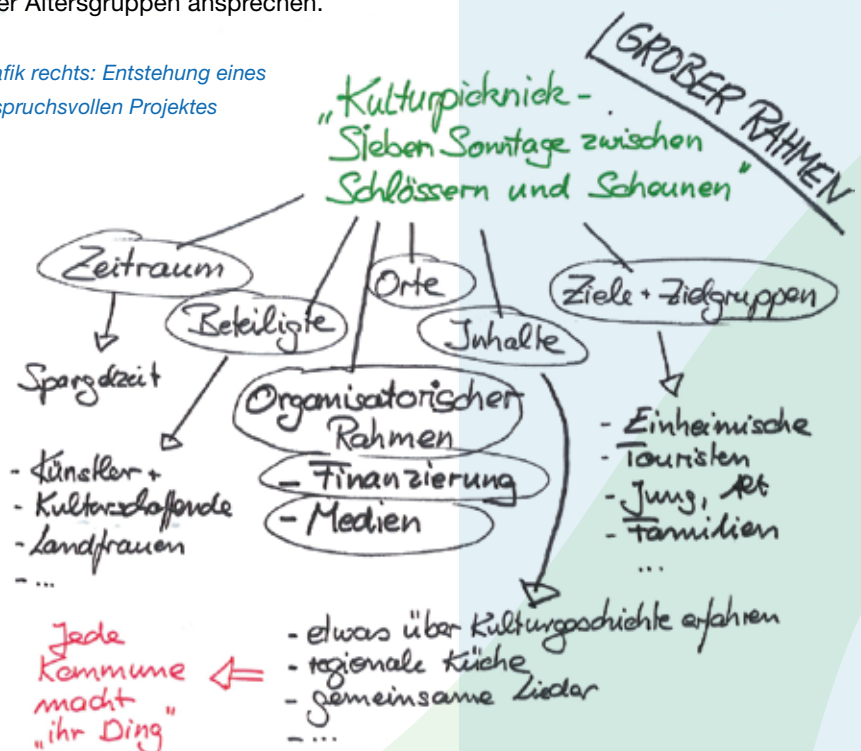 er Altersgruppen ansprechen.
afik rechts: Entstehung eines
spruchsvollen Projektes
GROBER RAHMEN
„Kulturpicknick -
Sieben Sonntage zwischen
Schlössern und Scheunen"
Zeitraum
Beteiligte
Orte
Inhalte
Ziele + Zielgruppen
Spargelzeit
Organisatorischer
Rahmen
- Finanzierung
- Medien
- Künstler +
- Kulturschaffende
- Landfrauen
- ...
- Einheimische
- Touristen
- Jung, Alt
- Familien
...
- etwas über Kulturgeschichte erfahren
- regionale Küche
- gemeinsame Lieder
- ...
Jede
Kommune
macht
„ihr Ding"